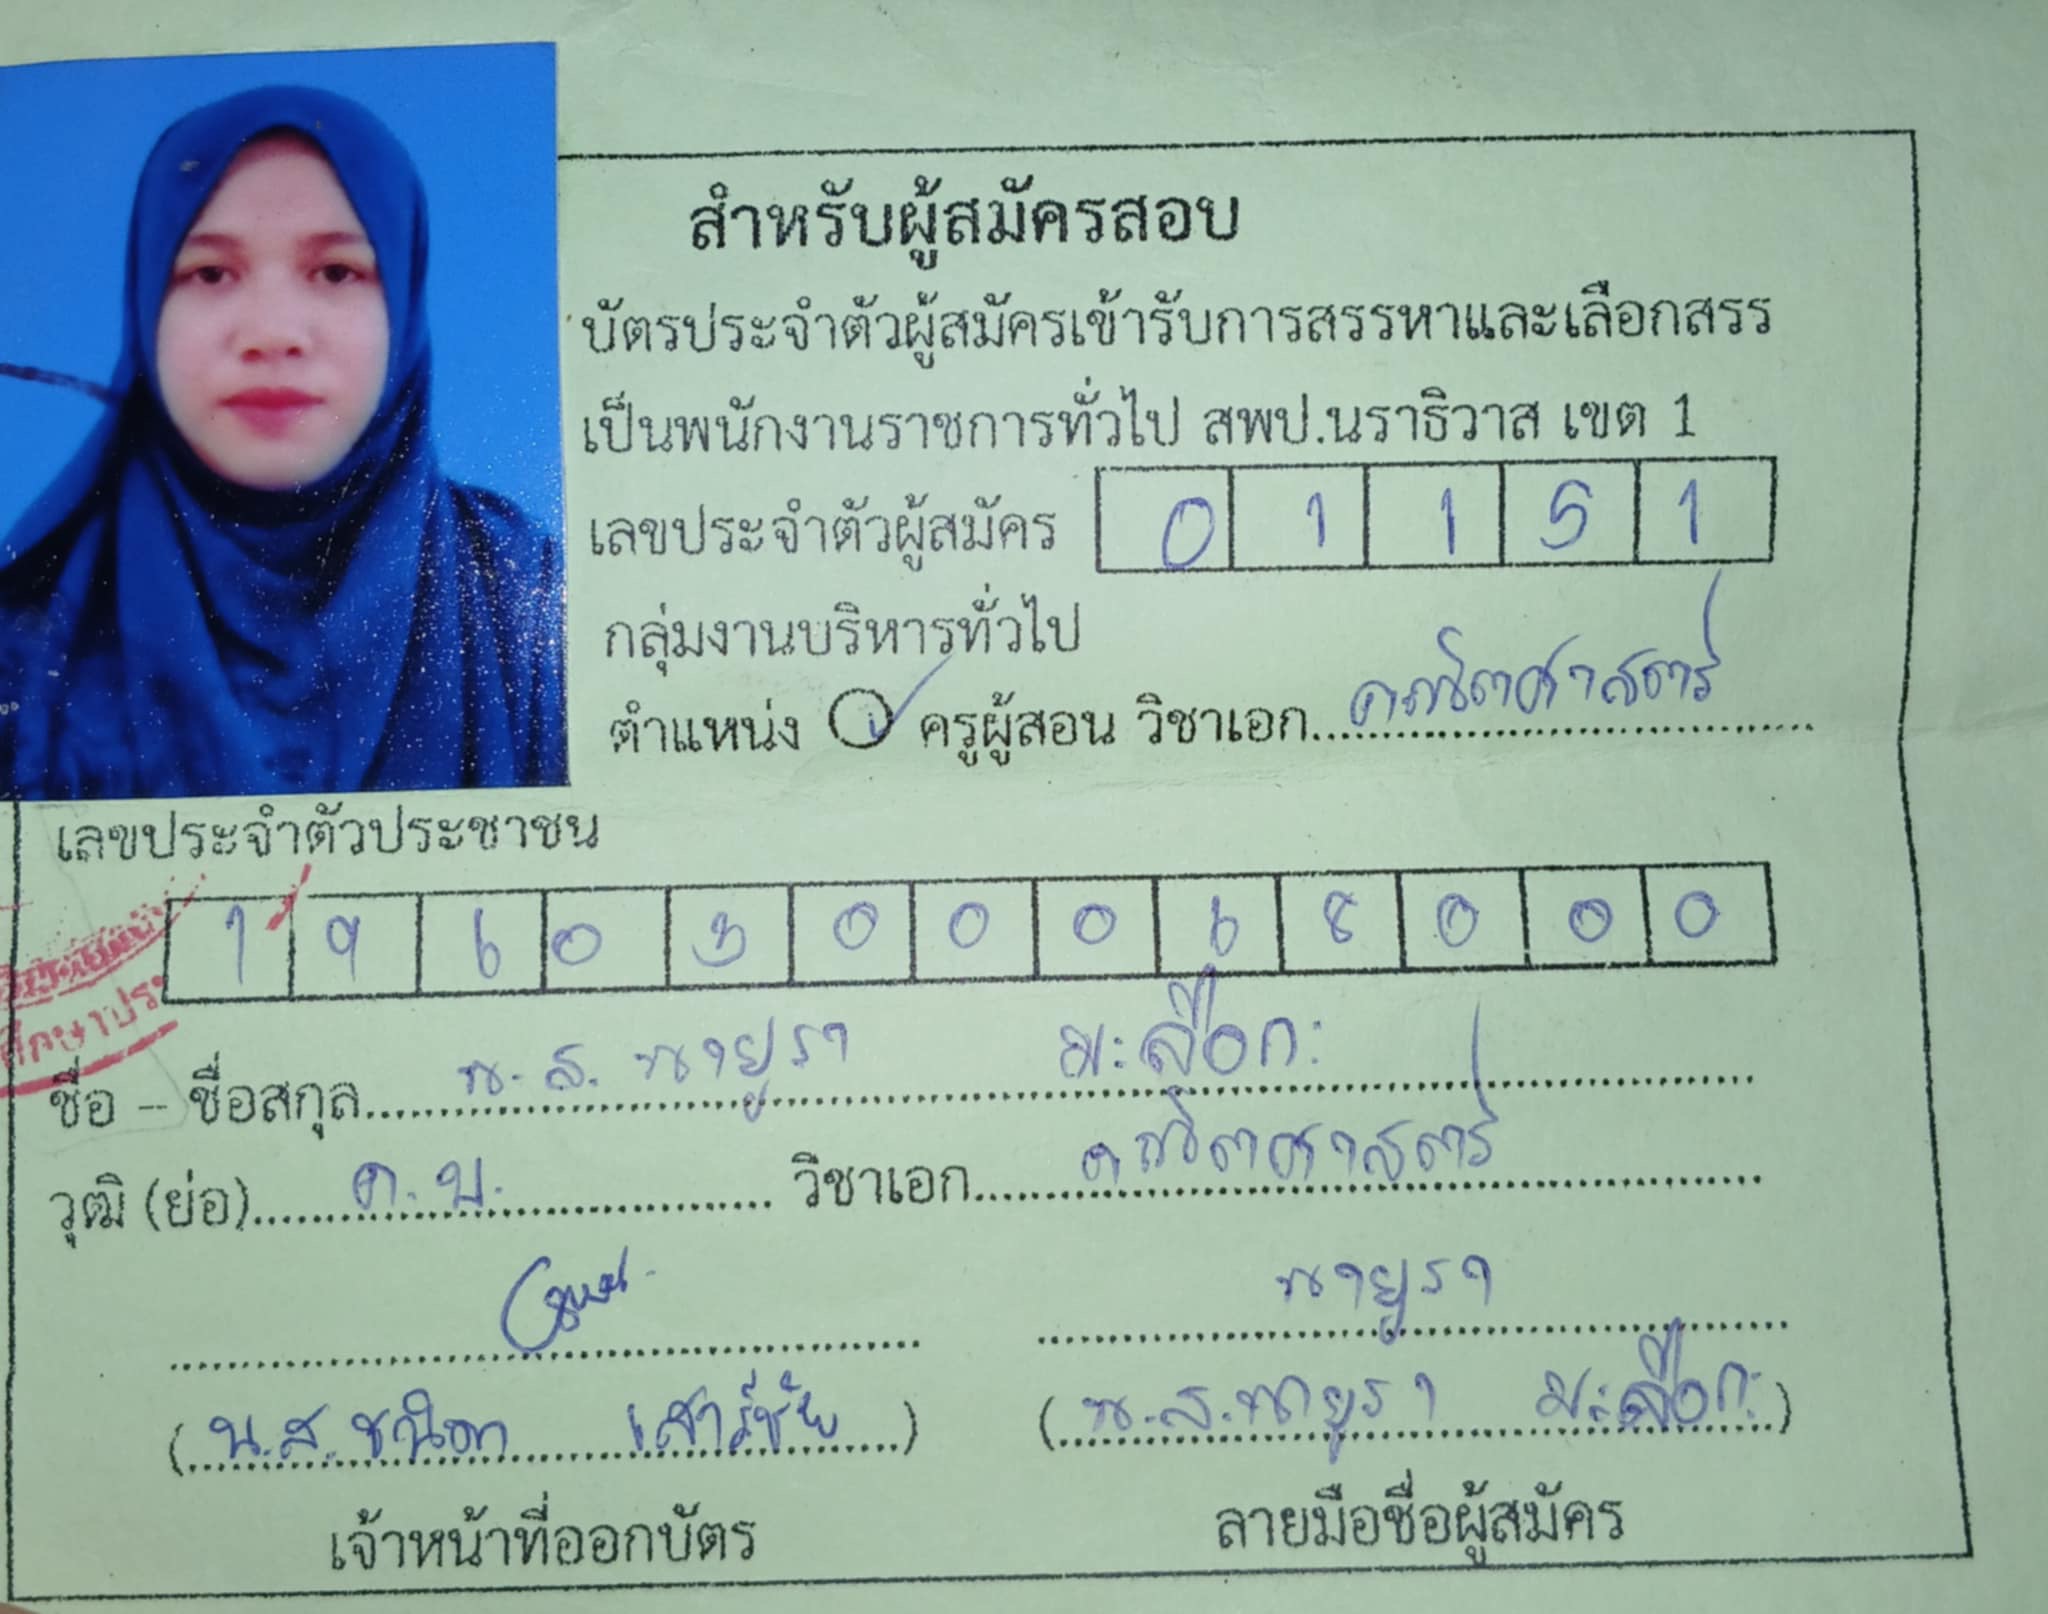 สำหรับผู้สมัครสอบ
บัตรประจำตัวผู้สมัครเข้ารับการสรรหาและเลือกสรร
เป็นพนักงานราชการทั่วไป สพป.นราธิวาส เขต 1
เลขประจำตัวผู้สมัคร 0 1 1 5 1
กลุ่มงานบริหารทั่วไป
ตำแหน่ง ครูผู้สอน วิชาเอก คณิตศาสตร์
เลขประจำตัวประชาชน
1 9 6 0 3 0 0 0 6 8 0 0 0
ศึกษาประ
ชื่อ – ชื่อสกุล น.ส. นายูรา มะลือกะ
วุฒิ (ย่อ) ค.บ. วิชาเอก คณิตศาสตร์
นายูรา
(น.ส. เสาร์ชัย) (น.ส.นายูรา มะลือกะ)
เจ้าหน้าที่ออกบัตร ลายมือชื่อผู้สมัคร